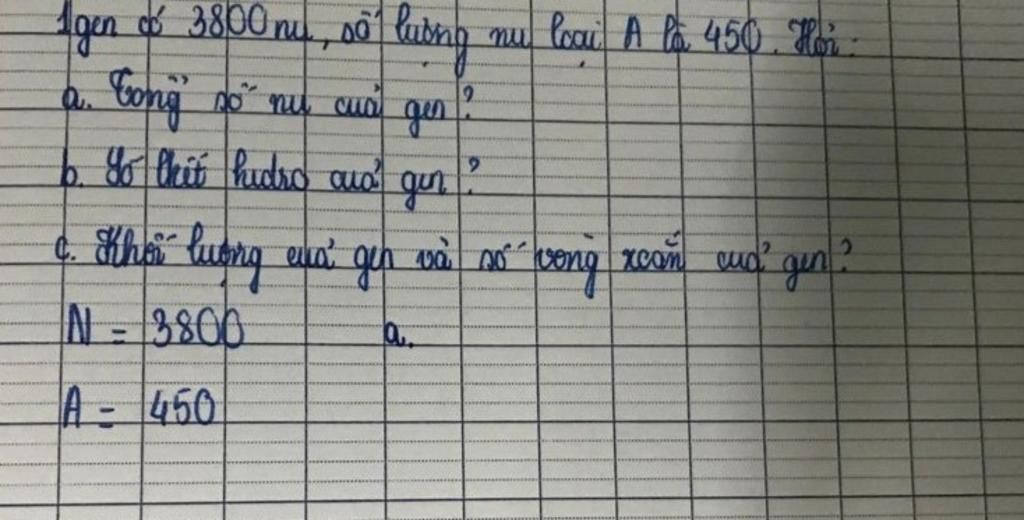 1gen có 3800 nu, số lượng nu loại A là 450. Hỏi:
a. Tổng số nu của gen?
b. Số lkết hidro của gen?
c. Khối lượng của gen và số vòng xoắn của gen?
N = 3800 a.
A = 450